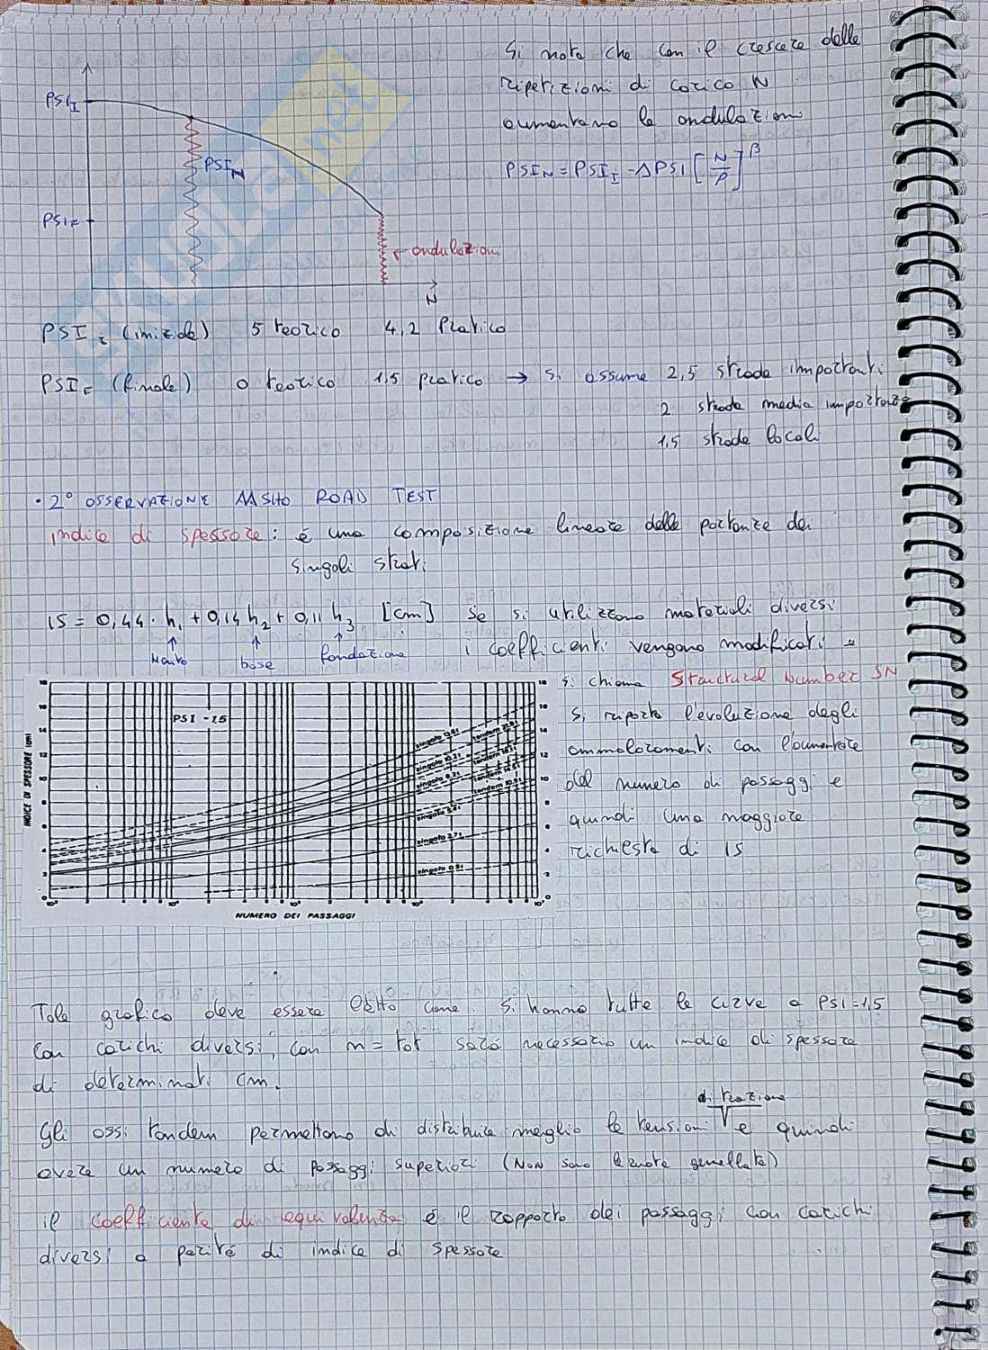 Si nota che con il crescere delle
ripetizioni di carico N
aumentano le ondulazioni
PSI_N = PSI_I - ΔPSI [N/ρ]^β
PSI_I
PSI_N
PSI_F
ondulazioni
N
SKUOLA.net
PSI_I (iniziale) 5 teorico 4,2 Pratico
PSI_F (finale) 0 teorico 1,5 pratico → si assume 2,5 strade importanti
2 strade media importanza
1,5 strade locali
• 2° OSSERVAZIONE AASHO ROAD TEST
indice di spessore: è una composizione lineare delle portanze dei
singoli strati
IS = 0,44 · h1 + 0,14 h2 + 0,11 h3 [cm] se si utilizzano materiali diversi
base fondazione i coefficienti vengono modificati e
si chiama Structural Number SN
Si riporta l'evoluzione degli
ammaloramenti con l'aumentare
del numero di passaggi e
quindi una maggiore
richiesta di IS
INDICE DI SPESSORE (cm)
PSI - 1.5
NUMERO DEI PASSAGGI
Tale grafico deve essere letto come. Si hanno tutte le curve a PSI=1,5
con carichi diversi, con n = tot sarà necessario un indice di spessore
di determinati cm.
di trazione
Gli assi tandem permettono di distribuire meglio le tensioni e quindi
avere un numero di passaggi superiori (NON sono le ruote gemellate)
il coefficiente di equivalenza è il rapporto dei passaggi con carichi
diversi a parità di indice di spessore